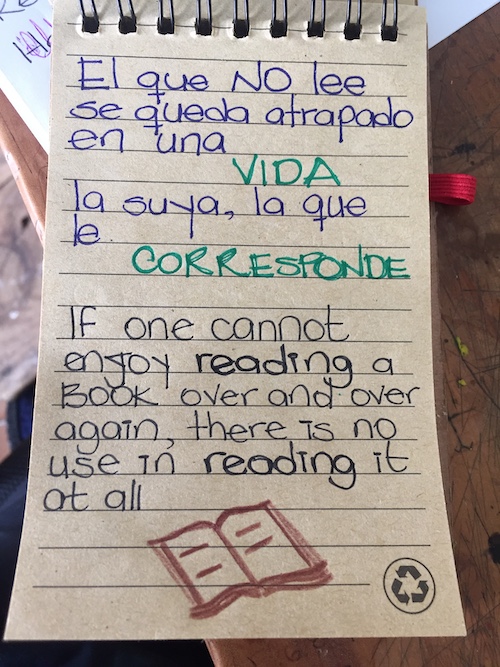 El que NO lee
se queda atrapado
en una
VIDA
la suya, la que
le
CORRESPONDE
IF one cannot
enjoy reading a
BOOK over and over
again, there is no
use in reading it
at all